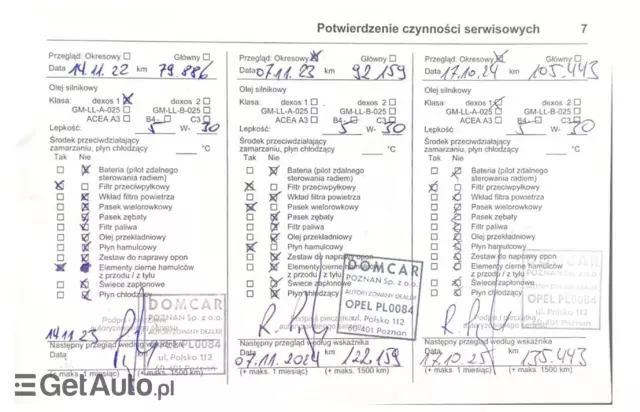 Potwierdzenie czynności serwisowych 7
Przegląd: Okresowy Główny
Data 14.11.22 km 79.886
Olej silnikowy
Klasa: dexos 1 dexos 2
GM-LL-A-025 GM-LL-B-025
ACEA A3 B4- C3
Lepkość: 5 W- 30
Środek przeciwdziałający
zamarzaniu, płyn chłodzący °C
Tak Nie
Bateria (pilot zdalnego
sterowania radiem)
Filtr przeciwpyłkowy
Wkład filtra powietrza
Pasek wielorowkowy
Pasek zębaty
Filtr paliwa
Olej przekładniowy
Płyn hamulcowy
Zestaw do naprawy opon
Elementy cierne hamulców
z przodu / z tyłu
Świece zapłonowe
Płyn chłodzący
DOMCAR
POZNAŃ Sp. z o.o.
AUTORYZOWANY DEALER
OPEL PL0084
ul. Polska 112
60-401 Poznań
14.11.23
Następny przegląd według wskaźnika
Data km
(+ maks. 1 miesiąc) (+ maks. 1500 km)
Przegląd: Okresowy Główny
Data 07.11.23 km 92.159
Olej silnikowy
Klasa: dexos 1 dexos 2
GM-LL-A-025 GM-LL-B-025
ACEA A3 B4- C3
Lepkość: 5 W- 30
Środek przeciwdziałający
zamarzaniu, płyn chłodzący °C
Tak Nie
Bateria (pilot zdalnego
sterowania radiem)
Filtr przeciwpyłkowy
Wkład filtra powietrza
Pasek wielorowkowy
Pasek zębaty
Filtr paliwa
Olej przekładniowy
Płyn hamulcowy
Zestaw do naprawy opon
Elementy cierne hamulców
z przodu / z tyłu
Świece zapłonowe
Płyn chłodzący
DOMCAR
POZNAŃ Sp. z o.o.
AUTORYZOWANY DEALER
OPEL PL0084
ul. Polska 112
60-401 Poznań
Następny przegląd według wskaźnika
Data 07.11.2024 km 122.159
(+ maks. 1 miesiąc) (+ maks. 1500 km)
Przegląd: Okresowy Główny
Data 17.10.24 km 105.443
Olej silnikowy
Klasa: dexos 1 dexos 2
GM-LL-A-025 GM-LL-B-025
ACEA A3 B4- C3
Lepkość: 5 W- 30
Środek przeciwdziałający
zamarzaniu, płyn chłodzący °C
Tak Nie
Bateria (pilot zdalnego
sterowania radiem)
Filtr przeciwpyłkowy
Wkład filtra powietrza
Pasek wielorowkowy
Pasek zębaty
Filtr paliwa
Olej przekładniowy
Płyn hamulcowy
Zestaw do naprawy opon
Elementy cierne hamulców
z przodu / z tyłu
Świece zapłonowe
Płyn chłodzący
DOMCAR
POZNAŃ Sp. z o.o.
AUTORYZOWANY DEALER
OPEL PL0084
ul. Polska 112
60-401 Poznań
Następny przegląd według wskaźnika
Data 17.10.25 km 135.443
(+ maks. 1 miesiąc) (+ maks. 1500 km)
GetAuto.pl